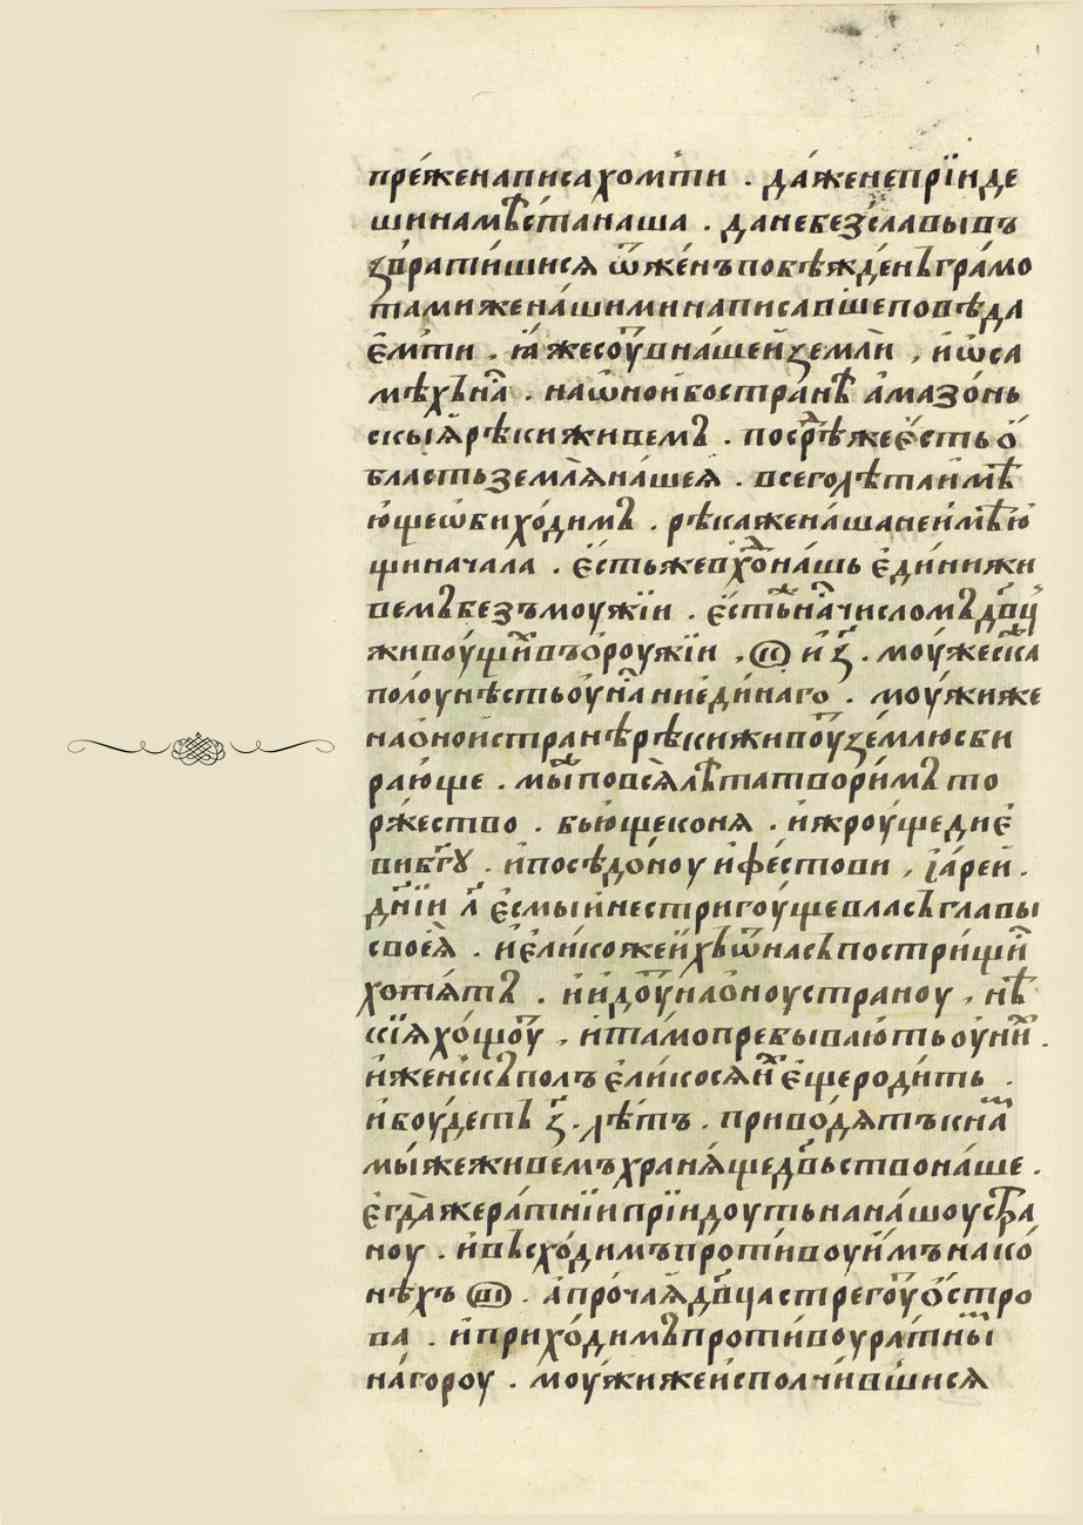 пре́женаписахомⷮти . да́женепрїиде
шинамѣста̀наша . данебезславывъ
звратившися ѿже́нъпобѣжде́нъгра́мо
тамижена́шиминаписавшеповѣда
е҆мⷮти . ꙗ҆́жесоуⷮвна́шейземлѝ , и҆ѡ҆са
мѣхънаⷭ҇ . наѡ҆нойбостранѣ̀ а҆мазо́нь
скыѧ҆рѣкиживемъ . посреⷣ҇ѣжее҆́стьо҆́
бластьземлѧ̀на́шеѧ . всеголѣтаи҆мѣ́
ю҆щеѡ҆бихо́димъ . рѣкажена́шанеи҆мѣ́ю
щиначала . е҆́стьжевхоⷣ҇на́шь е҆ди́ниижи
вемъбезъмоужїи . е҆́стьжⷤена́счисломъдв҃ц
живоу́щиⷯвъо҆роужїи , к҃ и҆ з҃ . моу́жеска
полоунѣстьоу҆на́сние҆ди́наго . моу́жиже
нао҆нойстранѣрѣкиживоуⷮзе́млюсби
ра́юще . мы́жⷤеповсѧ̀лѣ́татвори́мъто
рже́ство . бью́щеконѧ . и҆жроу́щедие҆
вибг҃ꙋ . и҆посѣдо́ноу и҆фе́стови , і҆а́рей .
дн҃їи л҃ е҆смыи҆нестригоу́щевласъглавы
своеѧ̀ . и҆е҆ли́коже́и҆хъѿнасъпостри́щиⷭ҇
хотѧ́тъ . и҆и҆доуⷮнао҆ноустраноу , нѣ́
сїѧхо́щоуⷮ , и҆та́мопребываю́тьоу҆ниⷯ .
и҆же́нскъполъ е҆ли́косѧиⷯ е҆́щероди́ть .
и҆боу́деть з҃ . лѣтъ . приво́дѧтъкнаⷨ
мы́жеживемъхранѧ́щедв҃ьствона́ше .
е҆гда̀жера́тнїиприїидоутьнана́шоустⷬ҇а
ноу . и҆въсхо́димъпроти́воуи҆́мънако́
нѣхъ в҃і . а҆про́чаѧдв҃цастрего́уⷮо҆́стро
ва . и҆прихо́димъпроти́воура́тныⷨ
на́гороу . моу́жижеи҆сполчи́вшисѧ